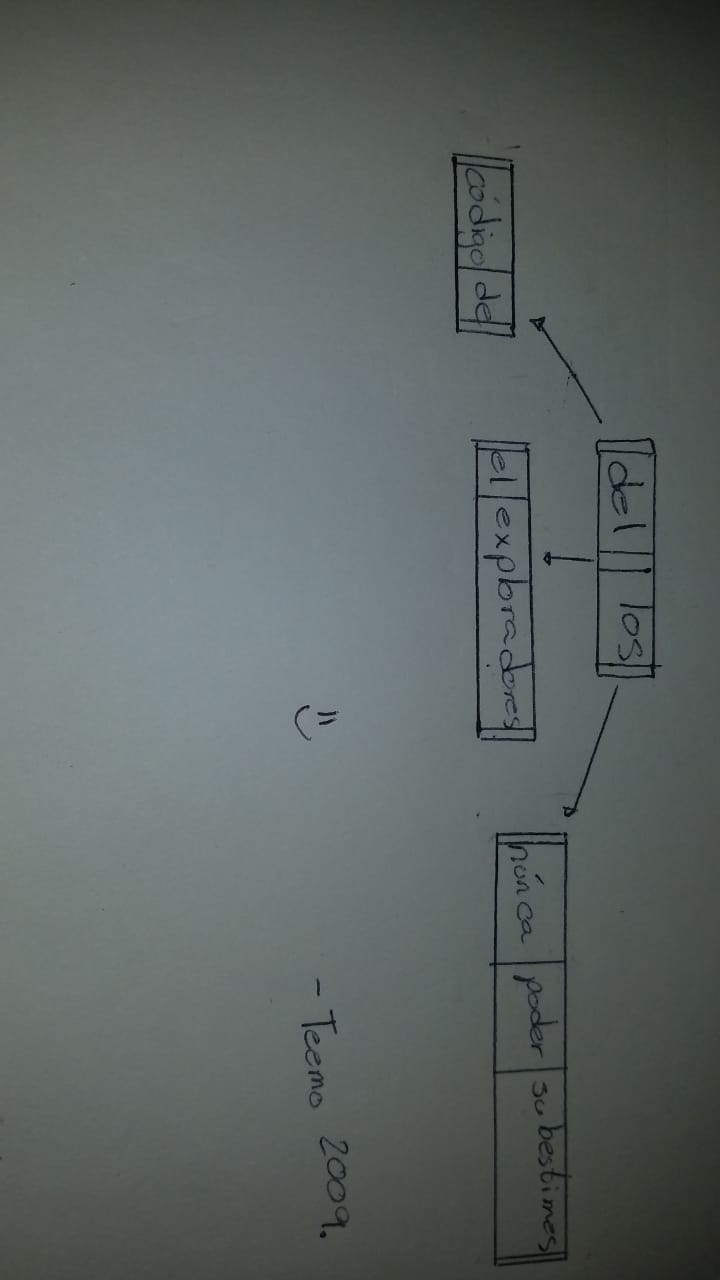 del los
código de
el exploradores
núnca poder subestimes
=)
- Teemo 2009.